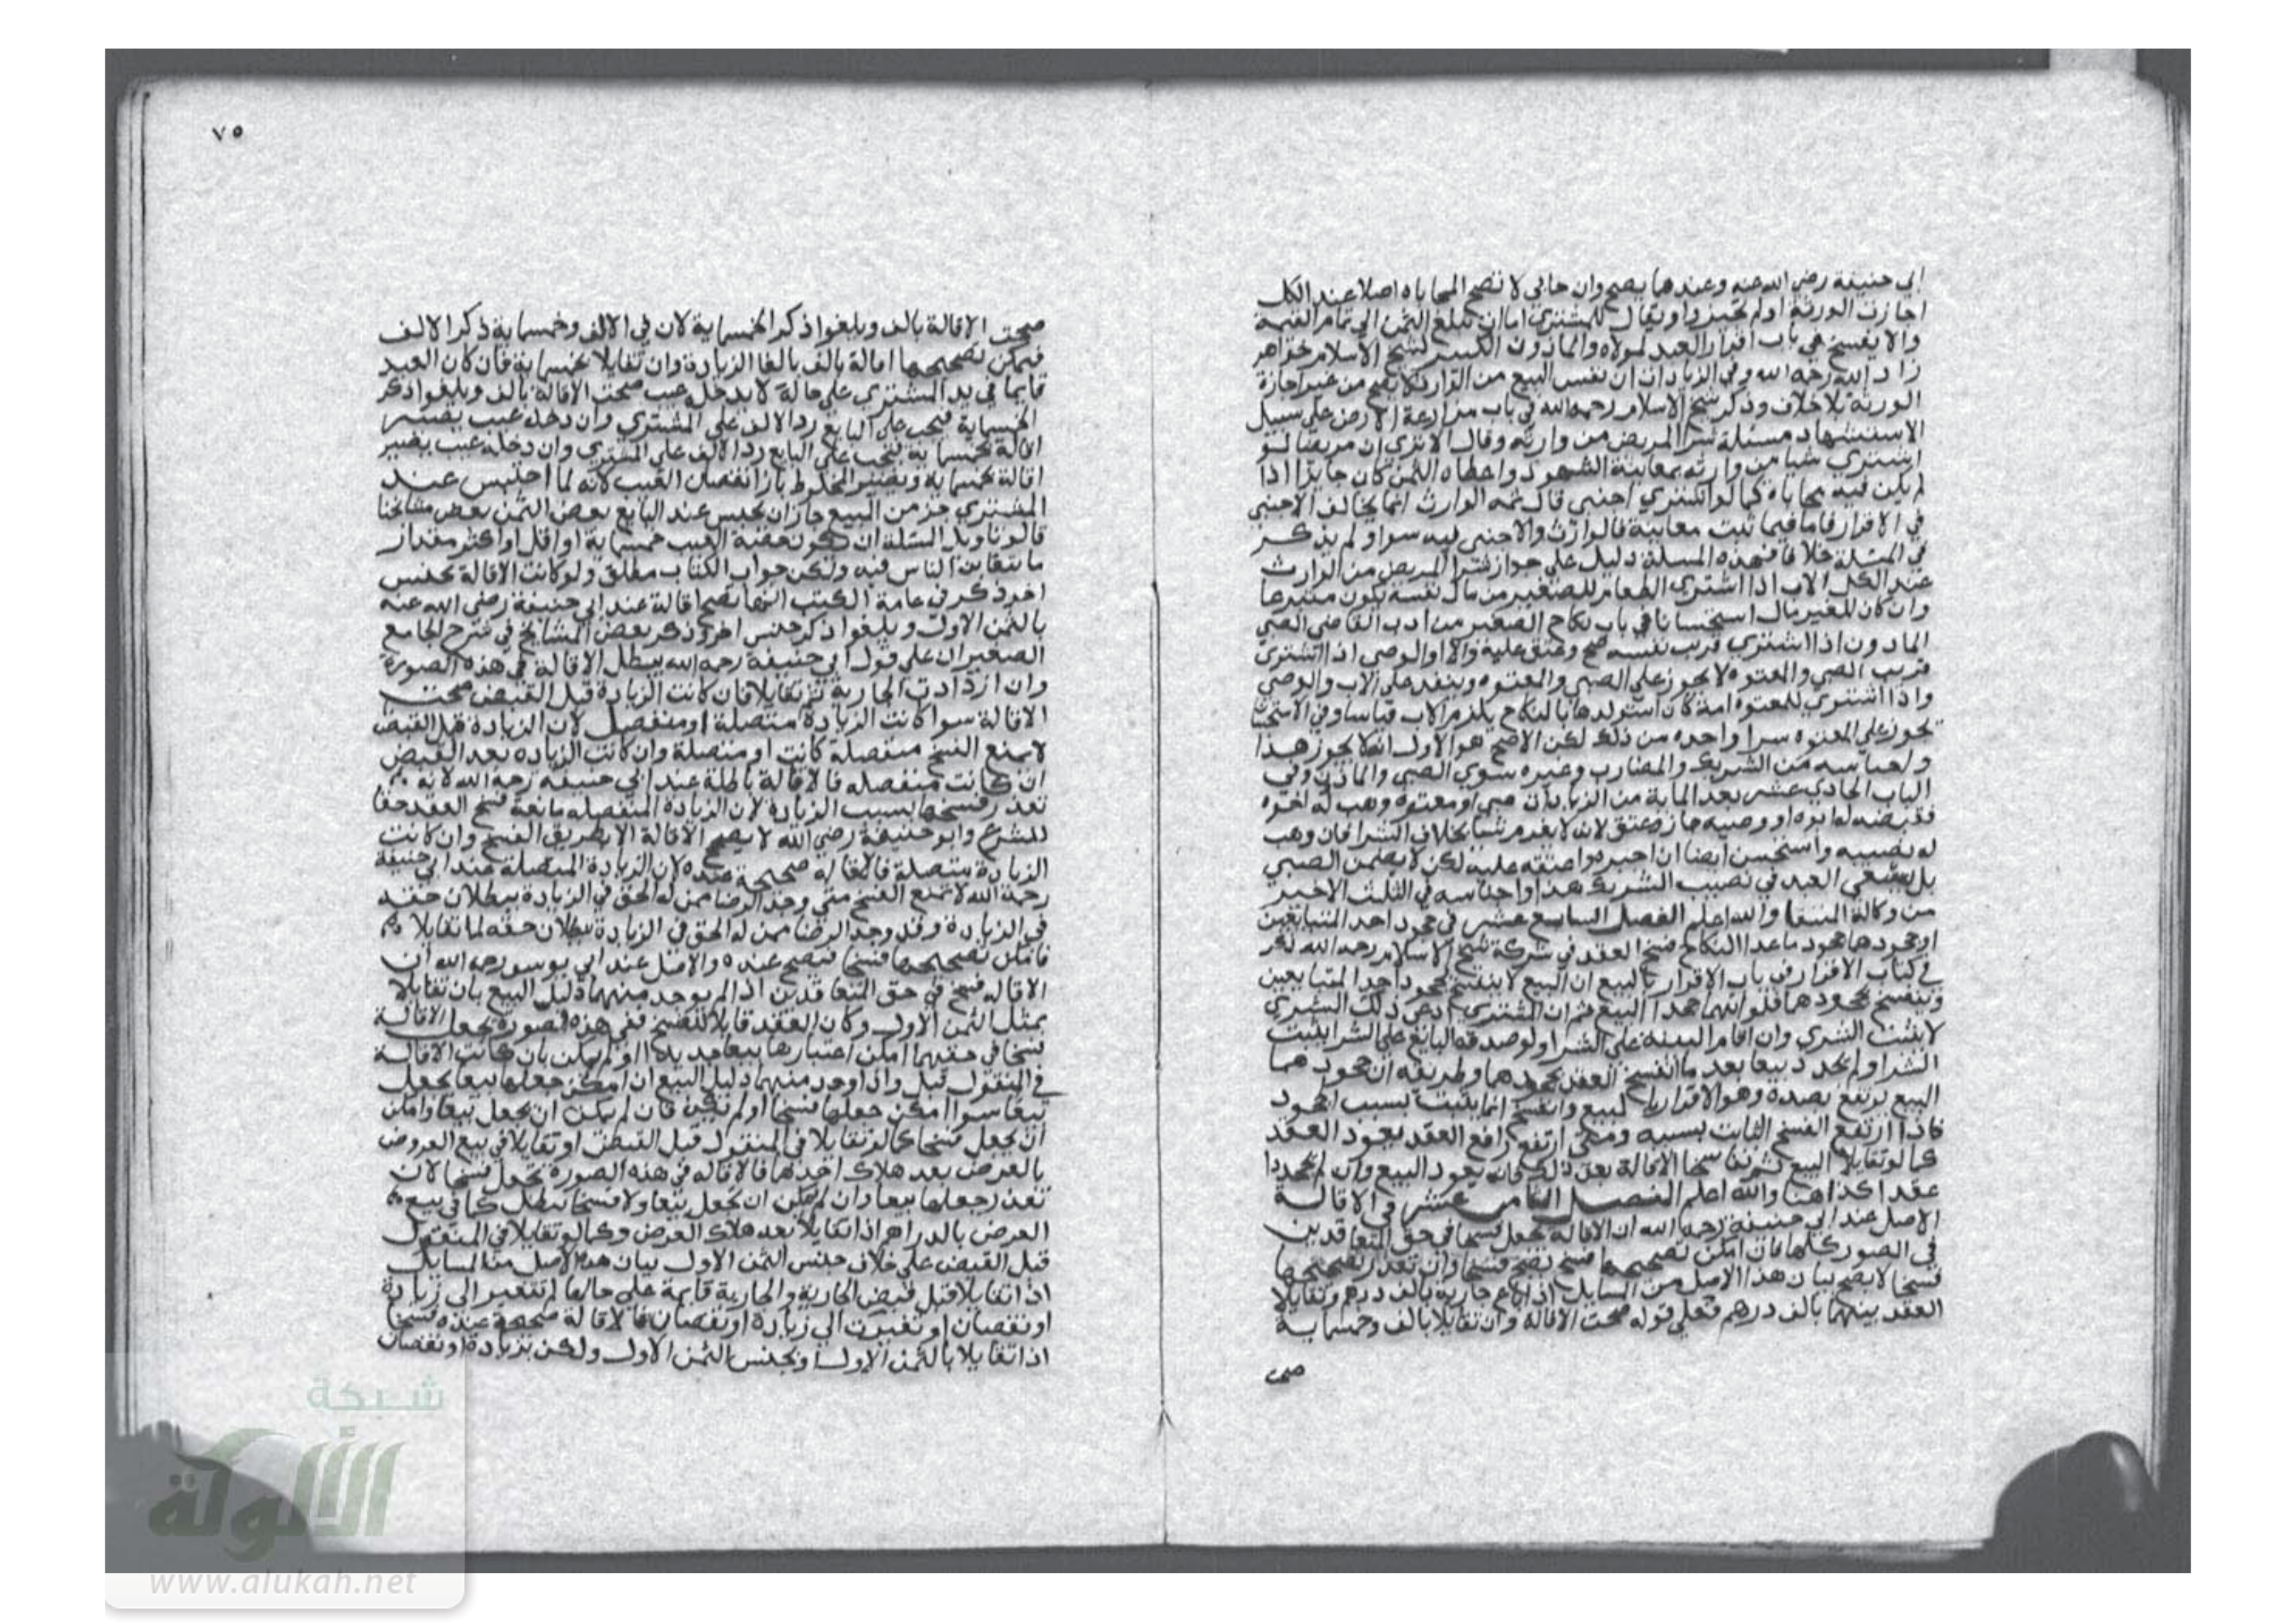 ابي حنيفة رضي الله عنه وعندهما يصح وان حابي لا تصح المحاباه اصلا عند الكل
اجازت الورثة او لم تجيزوا ويقال للمشتري اما ان تبلغ الثمن الي تمام القيمة
والا يفسخ في باب اقرار العبد لمولاه والماذون الكبير لشيخ الاسلام خواهر
زاد الله رحمه الله وفي الزيادات ان نفس البيع من الوارث لا يصح من غير اجازة
الورثة بلا خلاف وذكر شيخ الاسلام رحمه الله في باب مزارعة الارض علي سبيل
الاستشهاد مسئلة شرا المريض من وارثه وقال الا تري ان مريضا لو
اشتري شيا من وارثه بمعاينة الشهود واعطاه الثمن كان جايزا اذا
لم يكن فيه محاباه كما لو اشتري اجنبي قال ثمه الوارث انما يخالف الاجنبي
في الاقرار فاما فيما ثبت معاينة فالوارث والاجنبي فيه سوا ولم يذكر
في المسئلة خلافا فهذه المسلة دليل علي جواز شرا المريض من الوارث
عند الكل الاب اذا اشتري الطعام للصغير من مال نفسه يكون متبرعا
وان كان للصغير مال استحسانا في باب نكاح الصغير من ادب القاضي الصبي
الماذون اذا اشتري قريب نفسه صح وعتق عليه والاب او الوصي اذا اشتري
قريب الصبي والمعتوه لا يجوز علي الصبي والمعتوه وينفد علي الاب والوصي
واذا اشتري للمعتوه امة كان استولدها بالنكاح يلزم الاب قياسا وفي الاستحسان
تجوز علي المعتوه سرا واحده من ذلك لكن الاصح هو الاول انه لا يجوز هذا
ولهما سمه من الشريك والمضارب وغيره سوي الصبي والماذون وفي
الباب الحادي عشر بعد الماية من الزيادات صبي او معتوه وهب له اخوه
فقبضه له ابوه او وصيه جاز وعتق لانه لا يغرم شيا بخلاف الشرا فان وهب
له نصيبه واستحسن ايضا ان اجبره واعتقه عليه لكن لا يضمن الصبي
بل يسعي العبد في نصيب الشريك هذا واجناسه في الثلث الاخير
من وكالة المنتقا والله اعلم الفصل السابع عشر في جحود احد المتبايعين
او جحودهما جحود ما عدا النكاح فسخ العقد في شركة شيخ الاسلام رحمه الله ذكر
في كتاب الاقرار في باب الاقرار بالبيع ان البيع لا ينفسخ بجحود احد المتبايعين
وينفسخ بجحودهما فلو انهما جحدا البيع ثم ان المشتري ادعي ذلك الشري
لا يثبت الشري وان اقام البينة علي الشرا ولو صدقه البايع علي الشرا يثبت
الشرا ولم يجدد بيعا بعد ما انفسخ العقد بجحودهما وطريقه ان جحودهما
البيع يرتفع بضده وهو الاقرار بالبيع وانفسخ انما يثبت بسبب الجحود
فاذا ارتفع الفسخ الثابت بسببه ومتي ارتفع رافع العقد يعود العقد
كما لو تقايلا البيع ثم تفاسخا الاقالة بعد ذلك فانه يعود البيع وان لم يجددا
عقدا كذا هنا والله اعلم الفصل الثامن عشر في الاقالة
الاصل عند ابي حنيفة رحمه الله ان الاقالة تجعل فسخا في حق المتعاقدين
في الصور كلها فان امكن تصحيحها فسخ تصح فسخا وان تعذر تصحيحها
فسخا لا يصح بيان هذا الاصل من المسايل اذا باع جارية بالف درهم وتقايلا
العقد بينهما بالف درهم فعلي قوله صحت الاقالة وان تقايلا بالف وخمسماية
صحت
٧٥
صحت الاقالة بالف ويلغوا ذكر الخمسماية لان في الالف وخمسماية ذكر الالف
فيمكن تصحيحها اقالة بالف بالغا الزيادة وان تقايلا بخمسماية فان كان العبد
قايما في يد المشتري علي حالة لا يدخله عيب صحت الاقالة بالف ويلغوا ذكر
الخمسماية فيجب علي البايع رد الالف علي المشتري وان دخله عيب يصير
اقالة بخمسماية فيجب علي البايع رد الالف علي المشتري وان دخله عيب يصير
اقالة بخمسماية ويصير المحطوط بازا نقصان العيب لانه لما احتبس عند
المشتري جز من المبيع جاز ان يحبس عند البايع بعض الثمن بعض مشايخنا
قالو تاويل المسئلة ان تكون حصة العيب خمسماية او اقل او اكثر مقدار
ما يتغابن الناس فيه ولكن جواب الكتاب مطلق ولو كانت الاقالة بجنس
اخر ذكر في عامة الكتب انها تصح اقالة عند ابي حنيفة رضي الله عنه
بالثمن الاول ويلغوا ذكر جنس اخر وذكر بعض المشايخ في شرح الجامع
الصغير ان علي قول ابي حنيفة رحمه الله يبطل الاقالة في هذه الصورة
وان ازدادت الجارية ثم تقايلا فان كانت الزيادة قبل القبض صحت
الاقالة سوا كانت الزيادة متصلة او منفصل لان الزيادة قبل القبض
لا تمنع الفسخ منفصلة كانت او متصلة وان كانت الزيادة بعد القبض
ان كانت منفصله فالاقالة باطلة عند ابي حنيفة رحمه الله لانه
تعذر فسخها بسبب الزيادة لان الزيادة المنفصله مانعة فسخ العقد حقا
للشرع وابو حنيفة رضي الله لا يصح الاقالة الا بطريق الفسخ وان كانت
الزيادة متصلة فالاقالة صحيحة عنده لان الزيادة المتصلة عند ابي حنيفة
رحمة الله لا تمنع الفسخ متي وجد الرضا ممن له الحق في الزيادة ببطلان حقه
في الزيادة وقد وجد الرضا ممن له الحق في الزيادة ببطلان حقه لما تقايلا
فامكن تصحيحها فسخا فتصح عنده والاصل عند ابي يوسف رحمه الله ان
الاقاله فسخ في حق المتعاقدين اذا لم يوجد منهما دليل البيع بان تقايلا
بمثل الثمن الاول وكان العقد قابلا للفسخ ففي هذه الصورة تجعل الاقالة
فسخا في حقهما امكن اعتبارها بيعا جديدا او لم يمكن بان كانت الاقالة
في المنقول قبل واذا وجد منهما دليل البيع ان امكن جعلها بيعا يجعل
بيعا سوا امكن جعلها فسخا او لم يمكن فان لم يمكن ان يجعل بيعا وامكن
ان يجعل فسخا كما لو تقايلا في المنقول قبل القبض او تقايلا في بيع العروض
بالعرض بعد هلاك احدهما فالاقاله في هذه الصورة تجعل فسخا لان
تعذر جعلها بيعا وان لم يمكن ان تجعل بيعا ولا فسخا تبطل كما في بيع
العرض بالدراهم اذا تقايلا بعد هلاك العرض وكما لو تقايلا في المنقول
قبل القبض علي خلاف جنس الثمن الاول بيان هذا الاصل من المسايل
اذا تقايلا قبل قبض الجارية والجارية قايمة علي حالها لم تتغير الي زيادة
او نقصان او تغيرت الي زيادة او نقصان فالاقالة صحيحة عنده فسخا
اذا تقايلا بالثمن الاول او بجنس الثمن الاول ولكن بزيادة او نقصان
شبكة
الألوكة
www.alukah.net